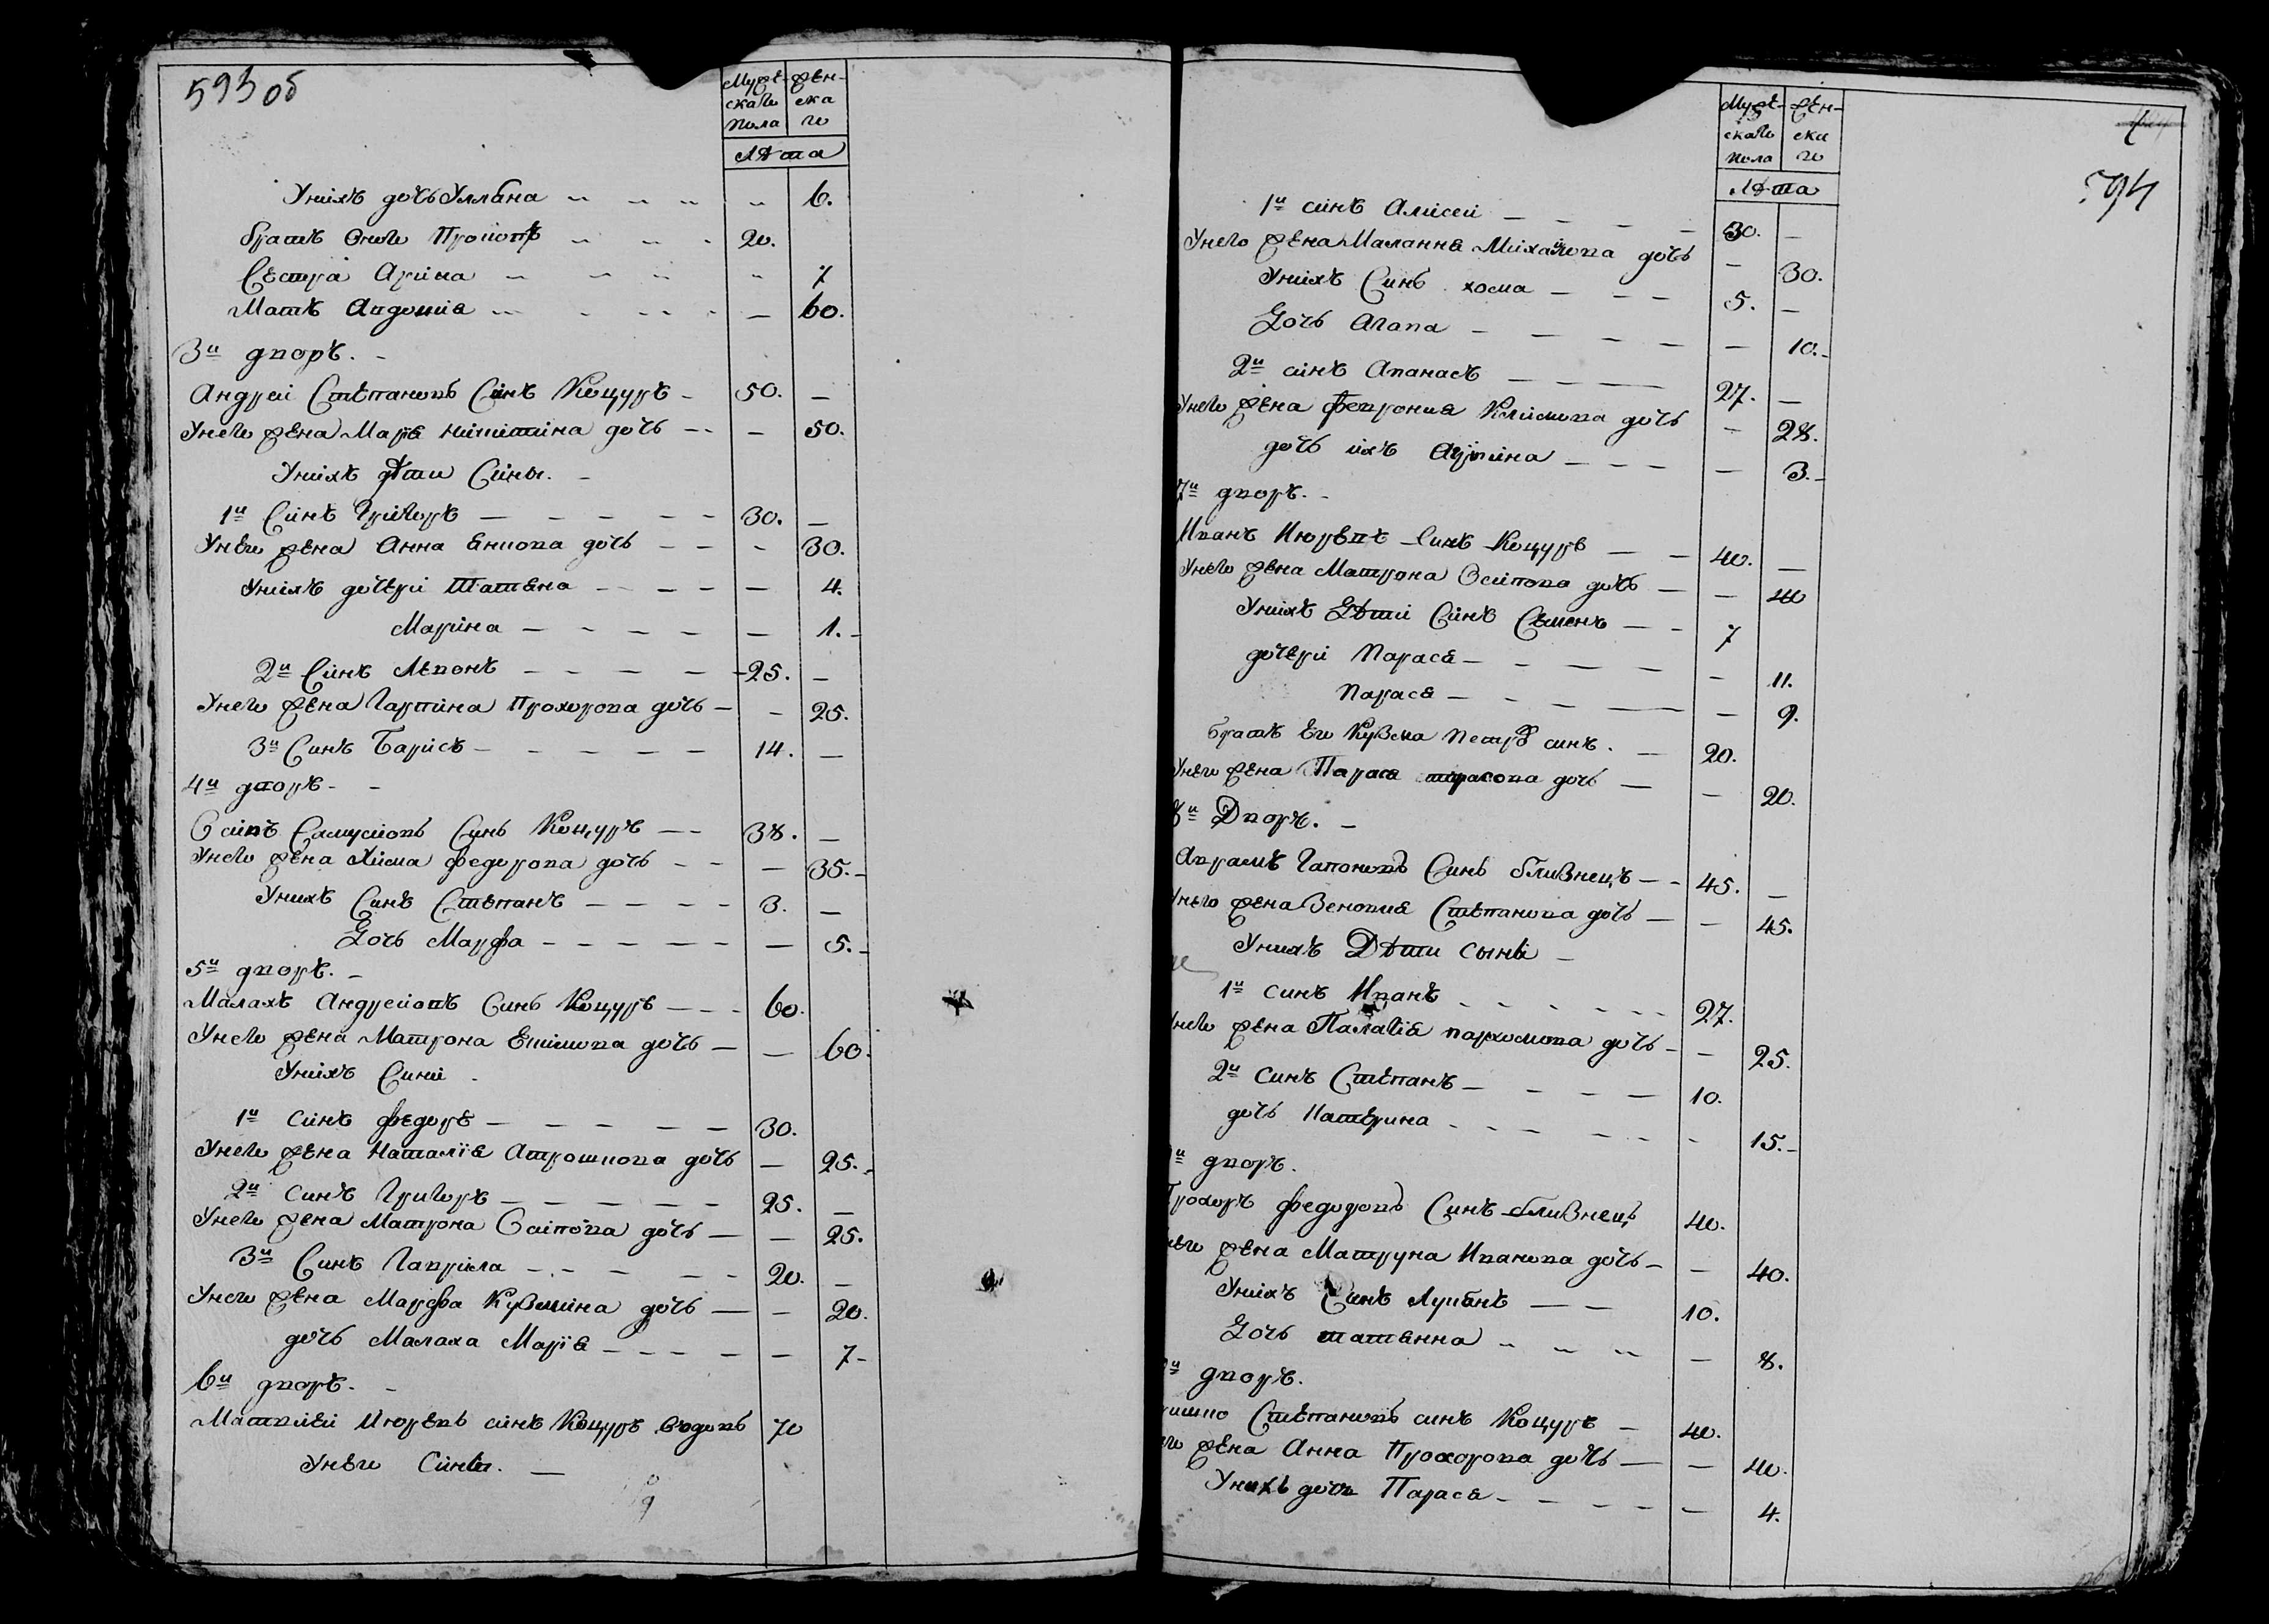 593 об
Мужескаго пола
женскаго
лѣта
Унихъ дочь Улляна 6.
братъ Онаго Прокопъ 20.
Сестра Арина 7
Мать Авдотия 60.
3й дворъ.
Андрей Степановъ Синъ Коцуръ 50. —
Унего жена Маря Никитина дочь — 50.
Унихъ дѣти Сины.
1й Синъ Григоръ 30. —
Унего жена Анна Якиова дочь - 30.
Унихъ дочери Татяна — 4.
Марина — 1.
2й Синъ Левонъ 25. —
Унего жена Гарпина Прохорова дочь - 25.
3й Синъ Барисъ 14. —
4й дворъ
Осипъ Самусиовъ Синъ Коцуръ 38. —
Унего жена Хима Федорова дочь — 35.
Унихъ Синъ Степанъ 3. —
Дочь Марфа — 5.
5й дворъ.
Малахъ Андрейовъ Синъ Коцуръ 60.
Унего жена Матрона Екимова дочь — 60.
Унихъ Сини
1й синъ Федоръ 30.
Унего жена Наталия Атрошкова дочь — 25.
2й синъ Григоръ 25. —
Унего жена Матрона Осипова дочь — 25.
3й Синъ Гаврила 20. —
Унего жена Марфа Кузмина дочь — 20.
дочь Малаха Мария — 7
6й дворъ.
Матвией Июревъ синъ Коцуръ вдовъ 70
Унего Сины.
594
Мужескаго пола
женскаго
лѣта
1й синъ Алисей 30. —
Унего жена Малання Михайлова дочь — 30.
Унихъ Синъ хома 5. —
Дочь Агапа — 10.
2й синъ Апанасъ 27. —
Унего жена Феврония Климова дочь - 28.
дочь ихъ — 3.
7й дворъ.
Иванъ Июревъ Синъ Коцуръ 40. —
Унего жена Матрона Осипова дочь — 40
Унихъ Дѣти Синъ Семенъ 7
дочери Парася - 11.
Парася — 9.
братъ Его Кузма Петръ синъ. 20.
Унего жена Парася тарасова дочь — 20.
8й Дворъ.
Аврамъ Гапоновъ Синъ близнецъ 45. —
Унего жена Зеновия Степанова дочь — 45.
Унихъ Дѣти сыны
1й синъ Иванъ 27.
Унего жена Палагия пархомова дочь — 25.
2й синъ Степанъ 10.
дочь Катерина - 15.
дворъ.
Прохоръ Федоровъ Синъ близнецъ 40.
жена Матруна Иванова дочь — 40.
Унихъ Синъ Лукянъ 10.
Дочь татянна — 8.
дворъ.
Степановъ синъ Коцуръ 40.
жена Анна Прохорова дочь — 40.
Унихъ дочь Парася — 4.